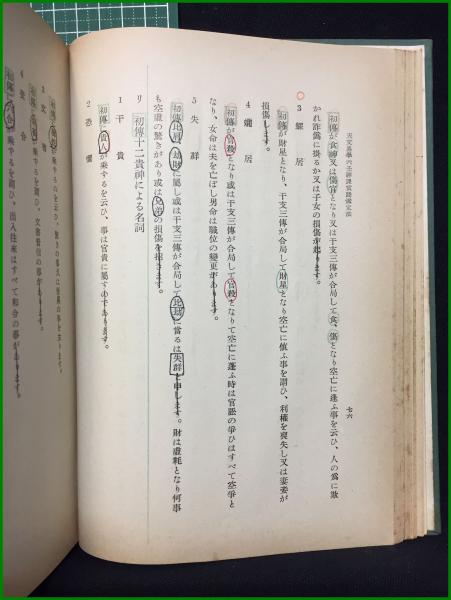 天文易學六壬神課實踐儀文法
七六
初傳が食神又は傷官となり又は干支三傳が合局して食、傷となり空亡に逢ふ事を云ひ、人の爲に欺
かれ詐僞に掛るか又は子女の損傷が起ります。
3 孀居
初傳が財星となり、干支三傳が合局して財星となり空亡に値ふ事を謂ひ、利權を喪失し又は妻妾が
損傷します。
4 孀居
初傳が官殺となり或は干支三傳が合局して官殺となりて空亡に逢ふ時は官訟の爭ひはすべて空爭と
なり、女命は夫を亡ぼし男命は職位の變更があります。
5 失群
初傳比肩、劫財に屬し或は干支三傳が合局して比劫に當るは失群と申します。財は虛耗となり何事
も空虛の驚きがあり或は兄弟の損傷を招きます。
リ 初傳十二貴神による名詞
1 干貴
初傳に貴人が乘ずるを云ひ、事は官貴に屬すのであります。
2 恐懼
3 文書
4 和合
初傳に六合が乘ずるを謂ひ、出入往來はすべて和合の事があります。